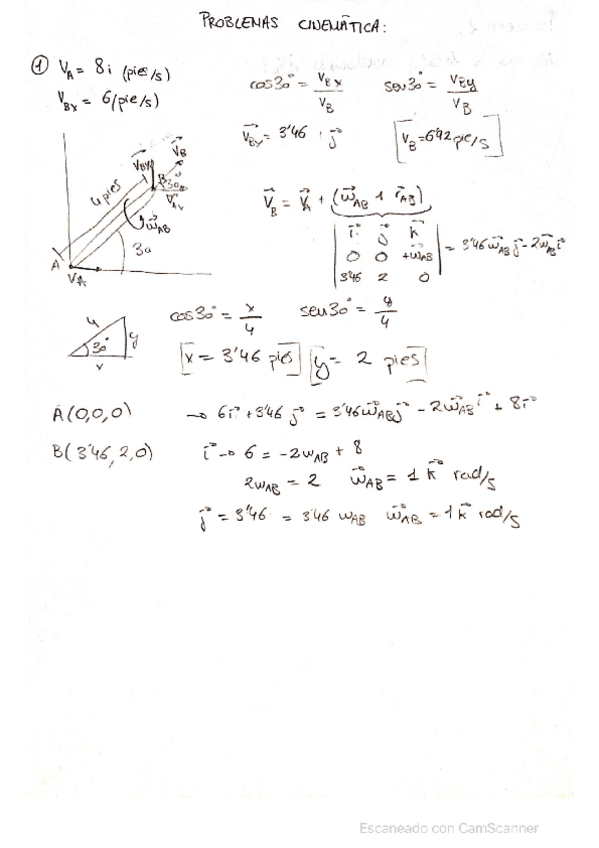 PROBLEMAS CINEMÁTICA:
① V_A = 8i (pies/s)
V_Bx = 6(pie/s)
cos30° = V_Bx / V_B
sen30° = V_By / V_B
V_Bx = 3'46 j
V_B = 6'92 pie/s
4 pies
V_By
V_B
B 30°
V_Ax
ω_AB
30
A
V_A
V_B = V_A + (ω_AB ∧ r_AB)
i j k
0 0 +ω_AB
3'46 2 0
= 3'46 ω_AB j - 2ω_AB i
4
y
30°
x
cos30° = x/4
sen30° = y/4
x = 3'46 pies
y = 2 pies
A(0,0,0)
→ 6i + 3'46 j = 3'46 ω_AB j - 2ω_AB i + 8i
B(3'46, 2, 0)
i → 6 = -2ω_AB + 8
2ω_AB = 2
ω_AB = 1 k rad/s
j = 3'46 = 3'46 ω_AB
ω_AB = 1 k rad/s
Escaneado con CamScanner